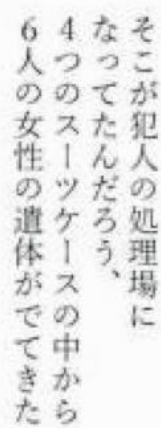 そこが犯人の処理場に
なってたんだろう、
4つのスーツケースの中から
6人の女性の遺体がでてきた